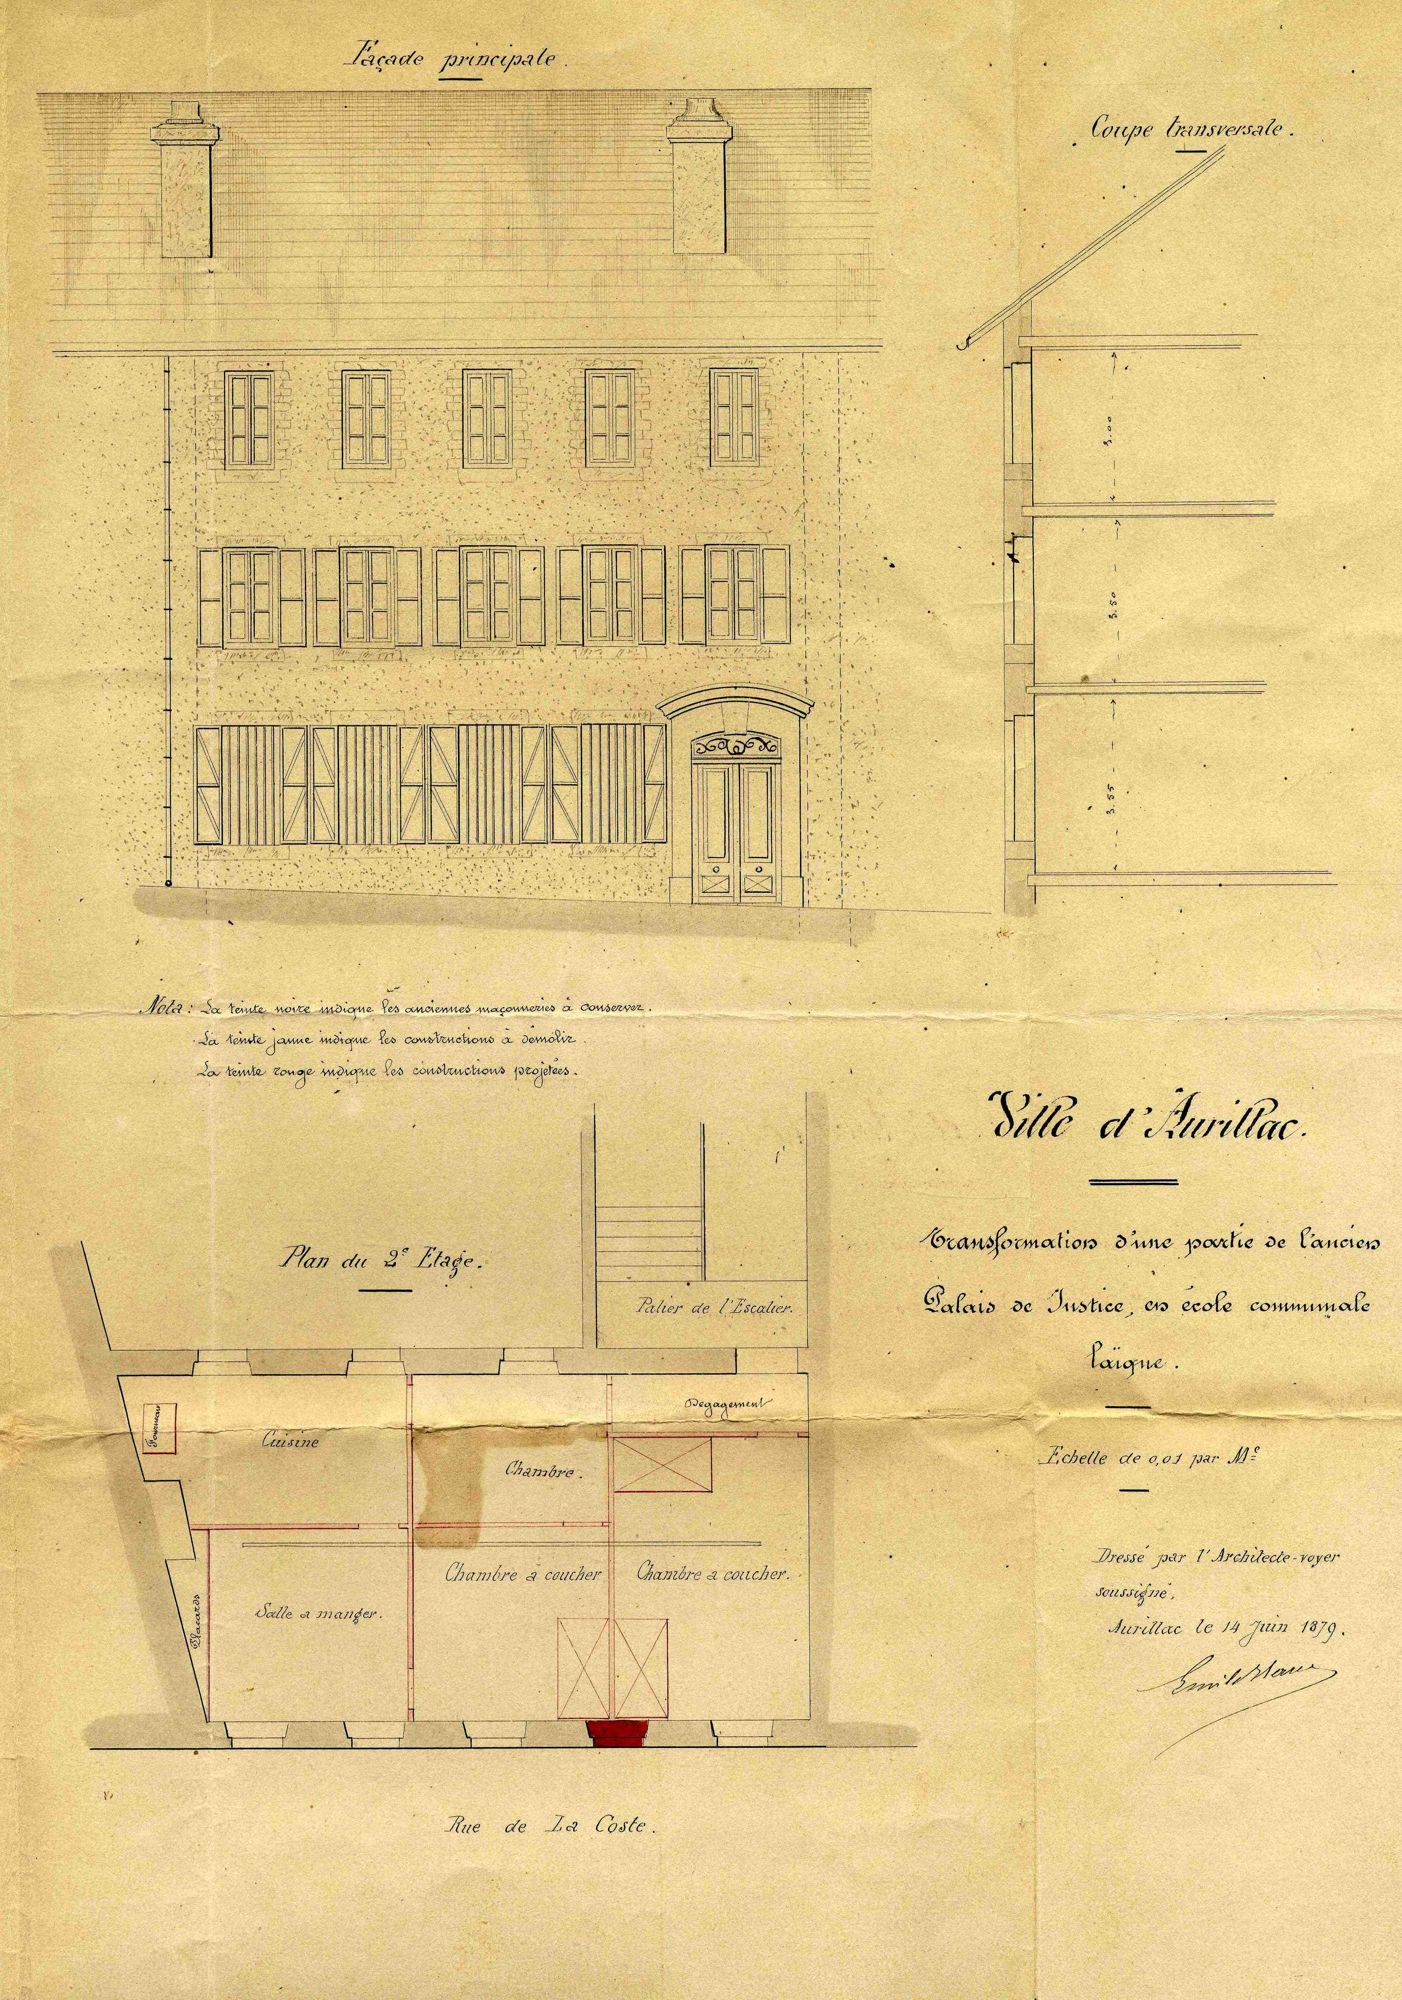 Façade principale.
Coupe transversale.
3.00
3.50
3.55
Nota: La teinte noire indique les anciennes maçonneries à conserver.
La teinte jaune indique les constructions à démolir.
La teinte rouge indique les constructions projetées.
Ville d'Aurillac.
Transformation d'une partie de l'ancien
Palais de Justice, en école communale
laïque.
Echelle de 0,01 par Mè
Dressé par l'Architecte-voyer
soussigné,
Aurillac le 14 Juin 1879.
Plan du 2e Etage.
Palier de l'Escalier.
Dégagement
Fourneau
Cuisine
Chambre.
Chambre à coucher
Chambre a coucher.
Salle a manger.
Placards
Rue de La Coste.